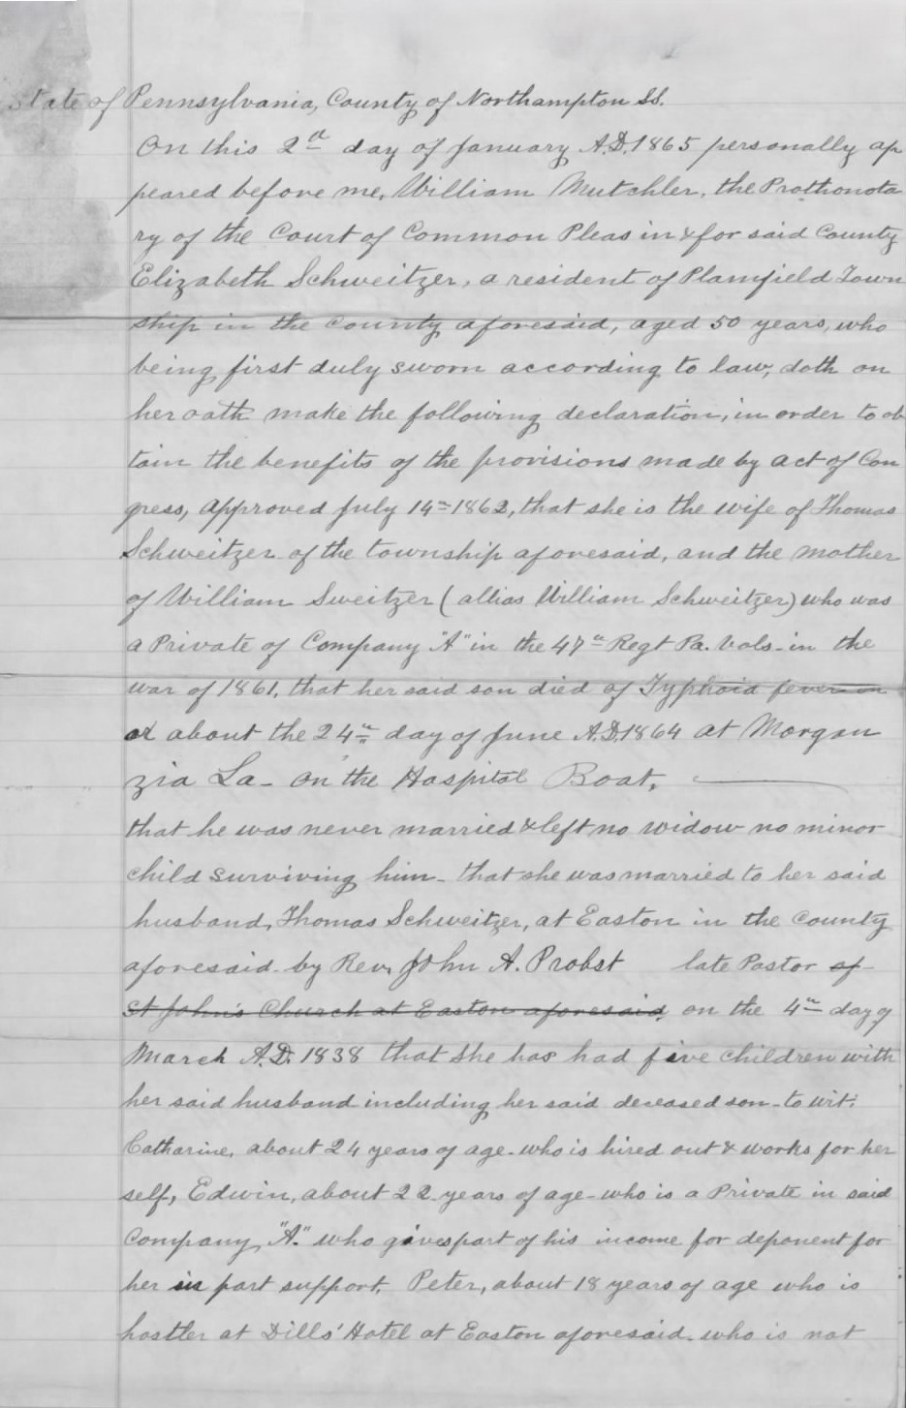 State of Pennsylvania, County of Northampton SS.
On this 2d day of January A.D. 1865 personally ap
peared before me, William Mutchler, the Prothonota
ry of the Court of Common Pleas in & for said County
Elizabeth Schweitzer, a resident of Plainfield Town
ship in the county aforesaid, aged 50 years, who
being first duly sworn according to law, doth on
her oath make the following declaration, in order to ob
tain the benefits of the provisions made by act of Con
gress, approved July 14th 1862, that she is the wife of Thomas
Schweitzer of the township aforesaid, and the mother
of William Sweitzer (allias William Schweitzer) who was
a Private of Company "A" in the 47th Regt Pa. Vols. in the
war of 1861, that her said son died of Typhoid fever on
or about the 24th day of June A.D. 1864 at Morgan
zia La - on the Hospital Boat,
that he was never married & left no widow no minor
child surviving him - that she was married to her said
husband, Thomas Schweitzer, at Easton in the County
aforesaid by Rev. John A. Probst late Pastor of
St John's Church at Easton aforesaid, on the 4th day of
March A.D. 1838 that she has had five children with
her said husband including her said deceased son - to wit:
Catharine, about 24 years of age - who is hired out & works for her
self, Edwin, about 22 years of age - who is a Private in said
Company "A." who gives part of his income for deponent for
her in part support, Peter, about 18 years of age who is
hostler at Dills' Hotel at Easton aforesaid - who is not